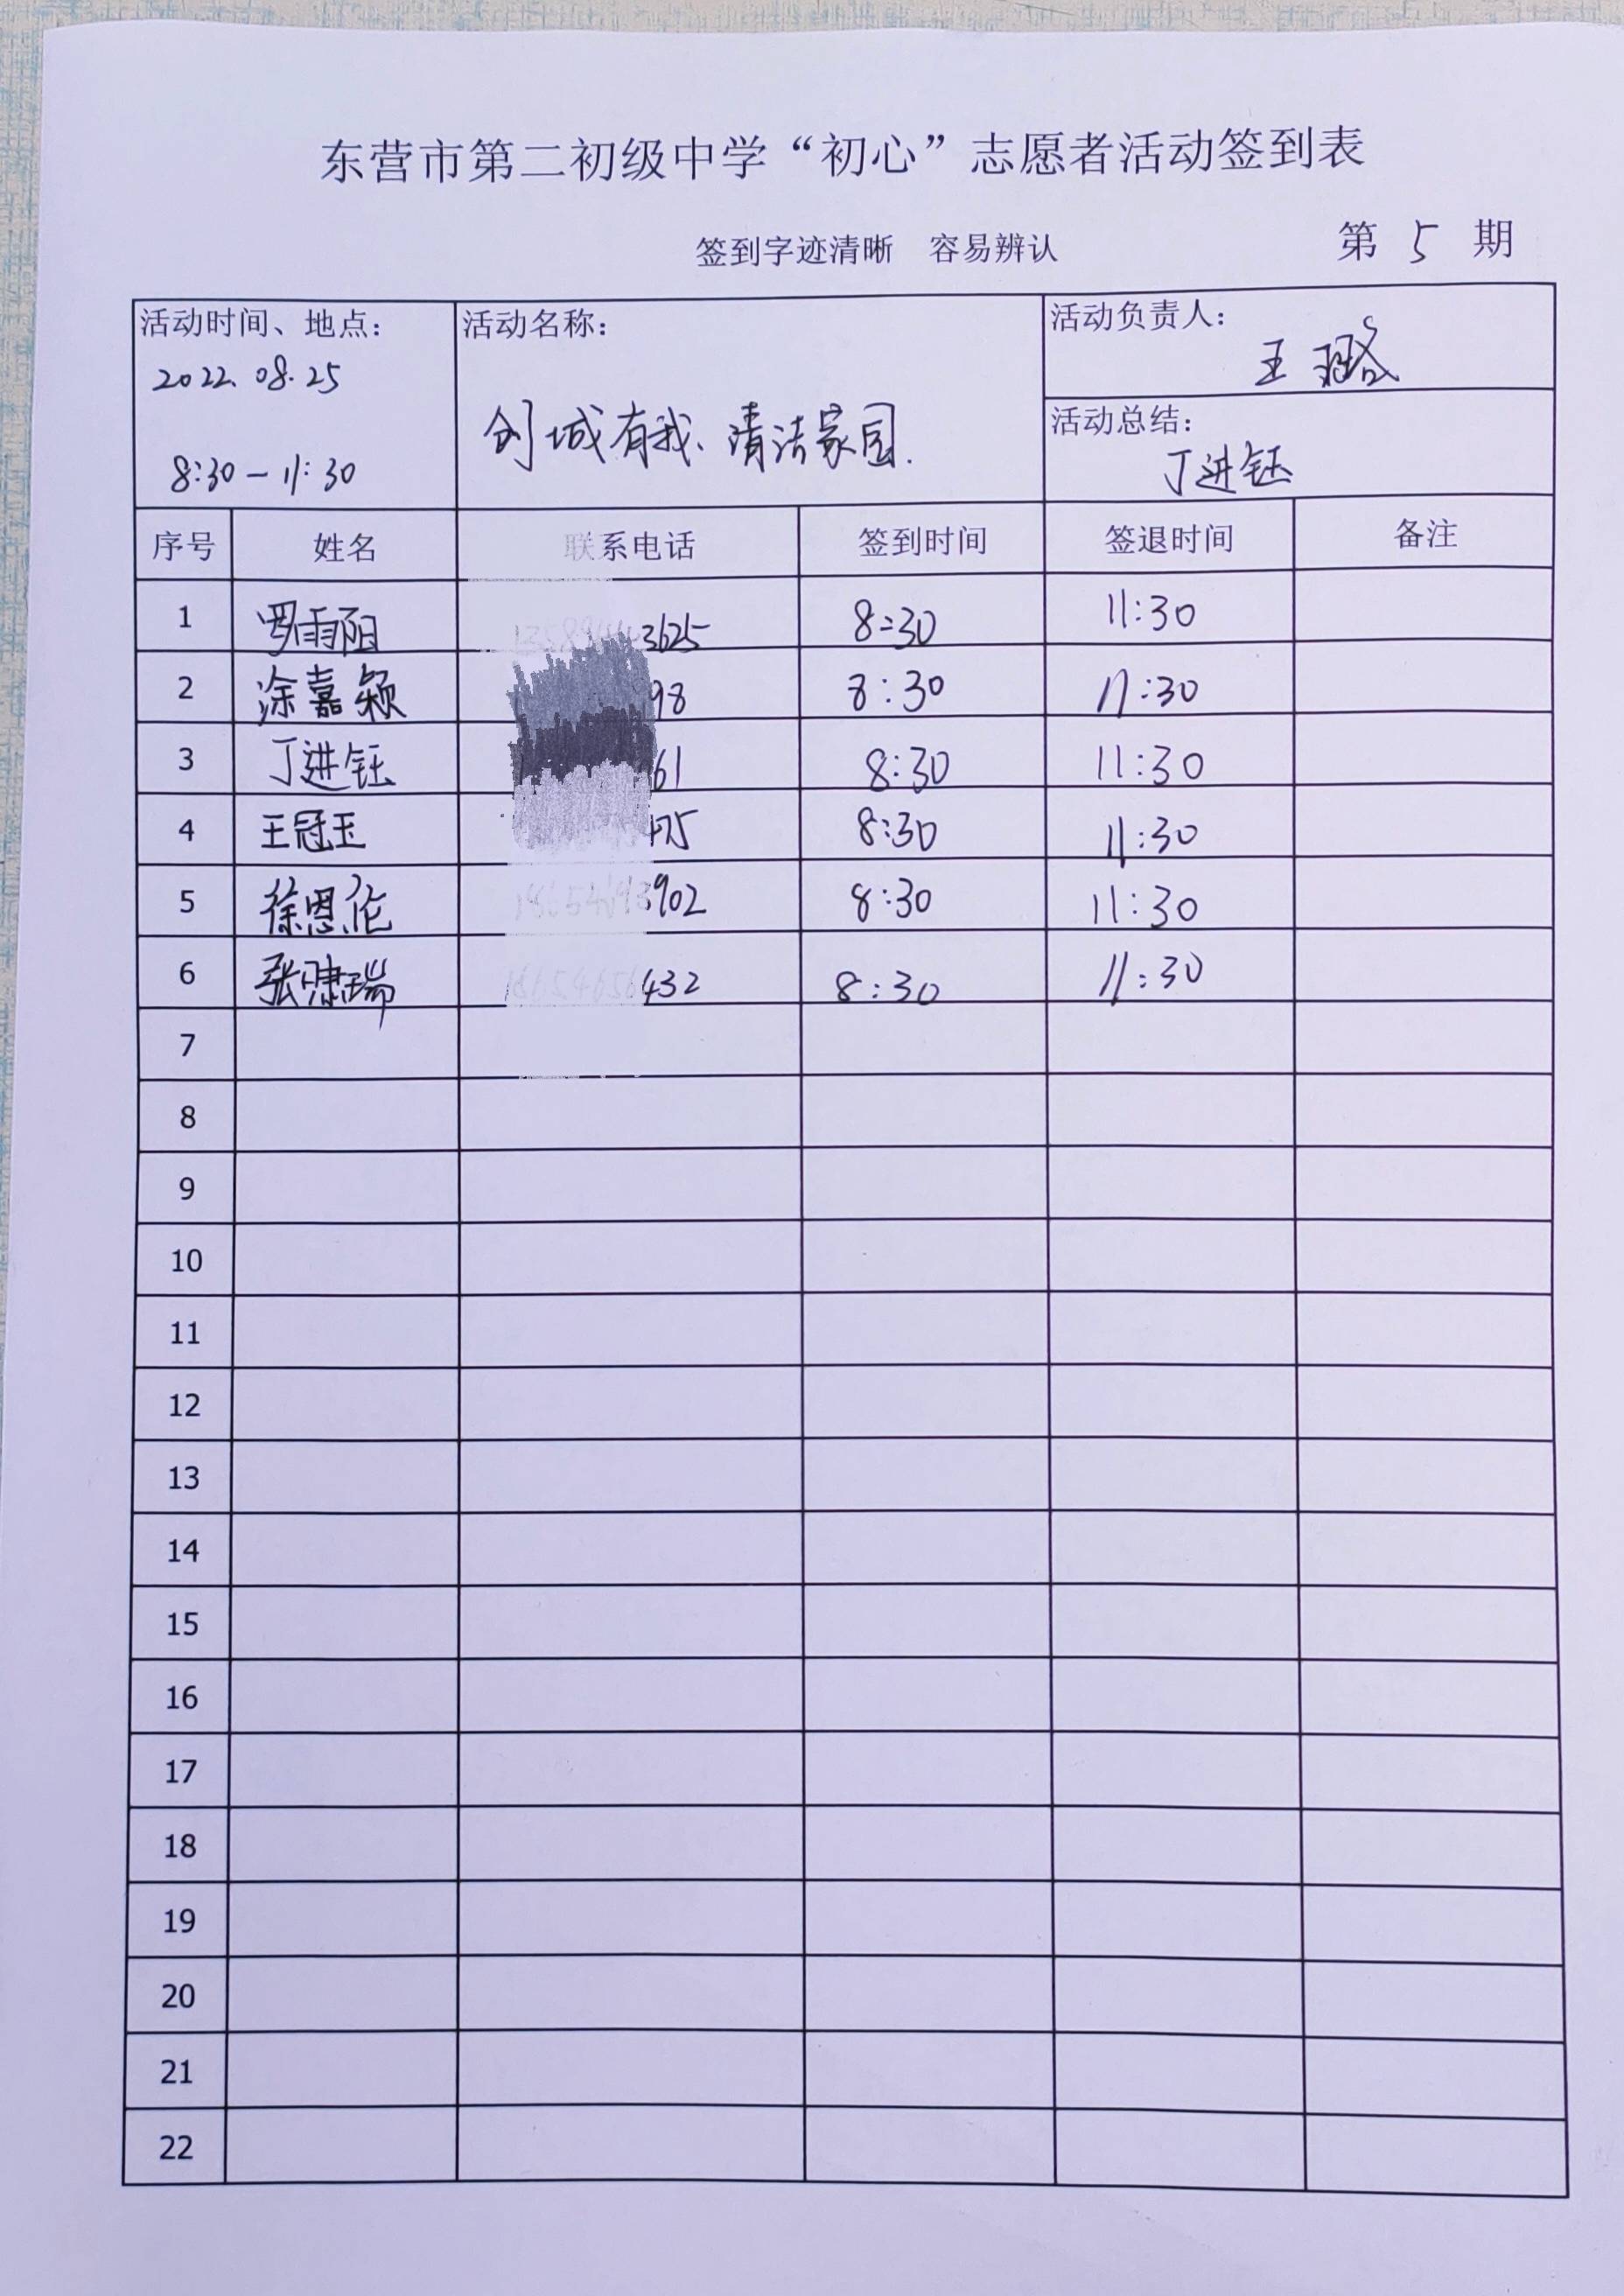 东营市第二初级中学“初心”志愿者活动签到表
签到字迹清晰 容易辨认 第 5 期
活动时间、地点： 活动名称： 活动负责人：
2022.08.25 王璐
创城有我、清洁家园. 活动总结：
8:30—11:30 丁进钰
序号 姓名 联系电话 签到时间 签退时间 备注
1 罗雨阳 3625 8:30 11:30
2 涂嘉颖 98 8:30 11:30
3 丁进钰 61 8:30 11:30
4 王冠玉 475 8:30 11:30
5 徐恩伦 902 8:30 11:30
6 张啸瑞 432 8:30 11:30
7
8
9
10
11
12
13
14
15
16
17
18
19
20
21
22